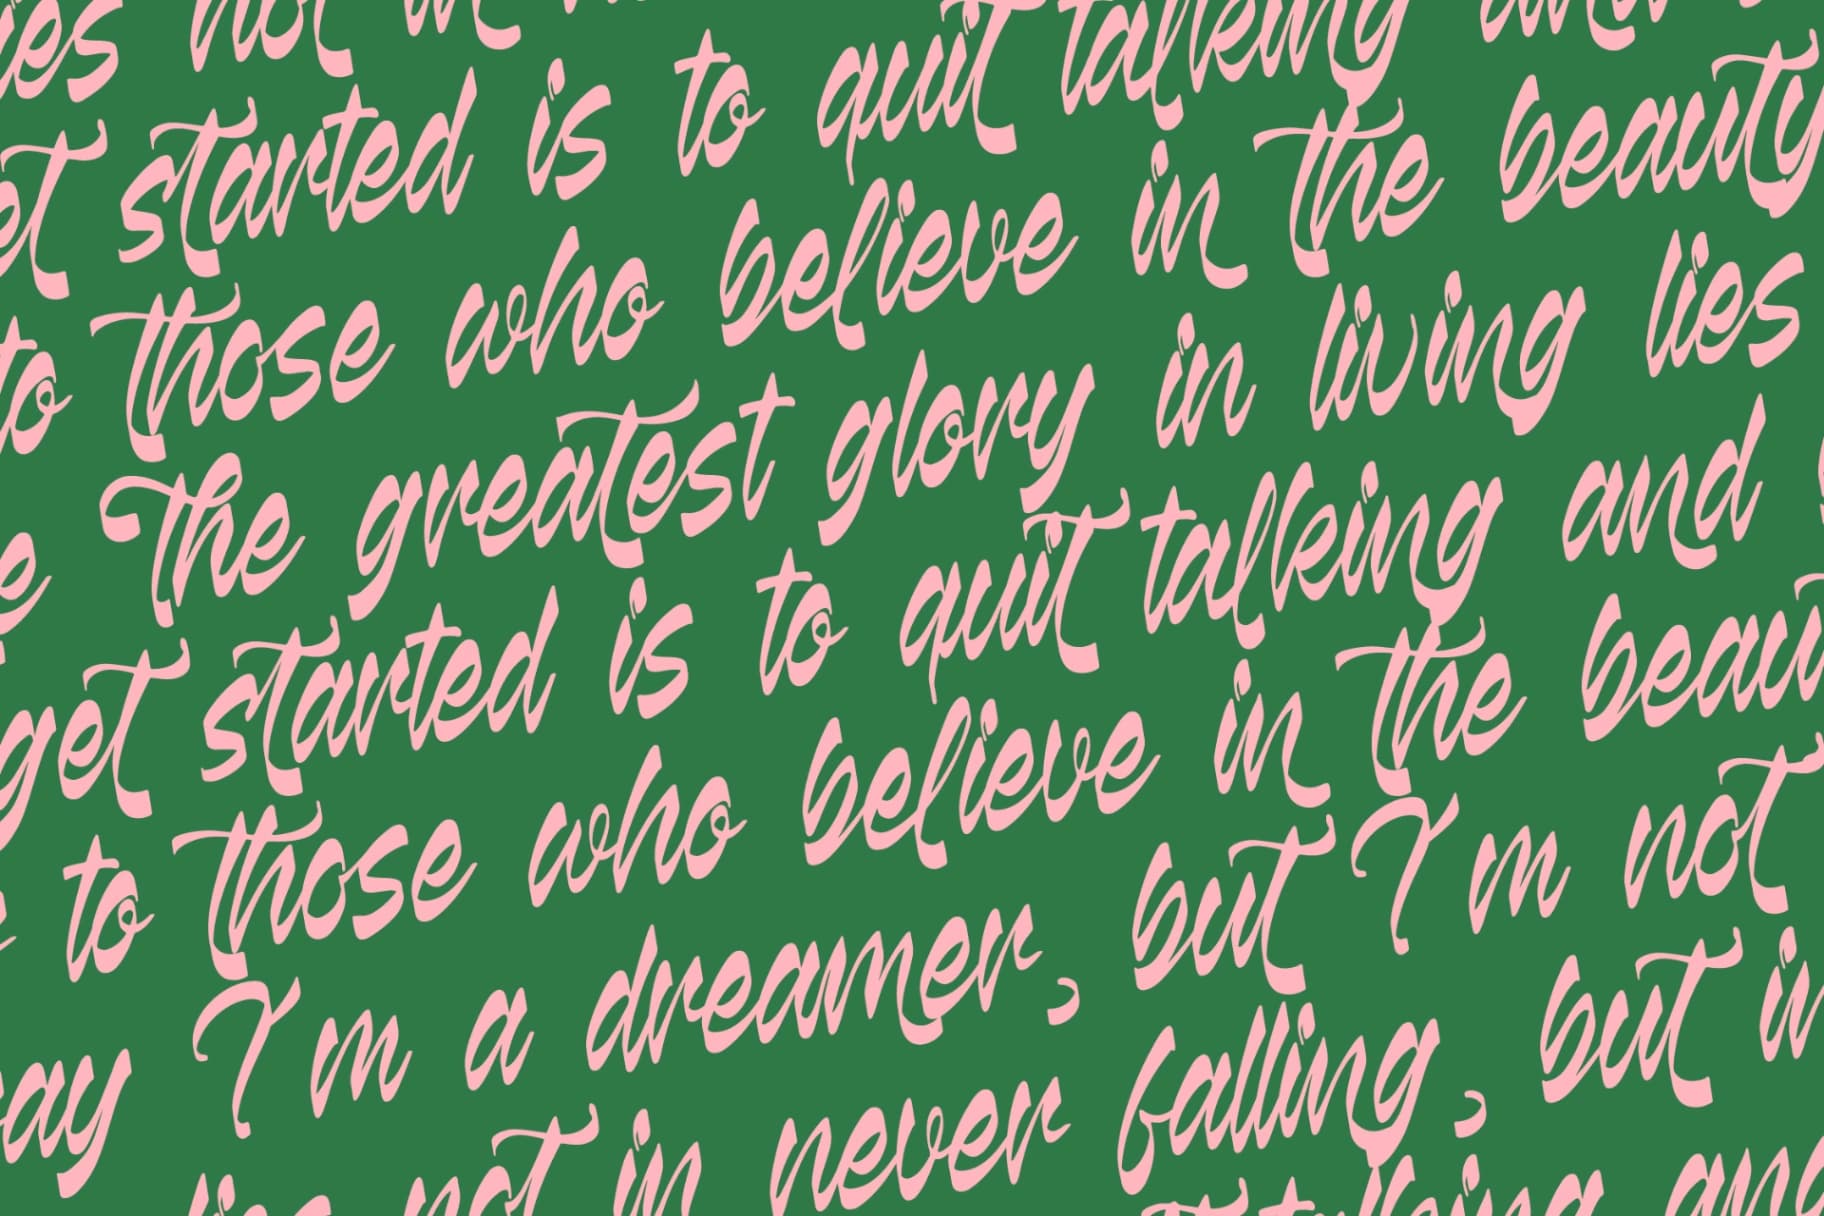 lies not in
get started is to quit talking and
to those who believe in the beauty
The greatest glory in living lies
get started is to quit talking and
to those who believe in the beau
say I'm a dreamer, but I'm not
lies not in never falling, but in
talking and